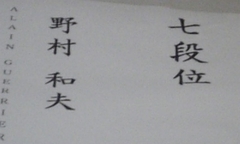 七段位
野村 和夫
ALAIN GUERRIER